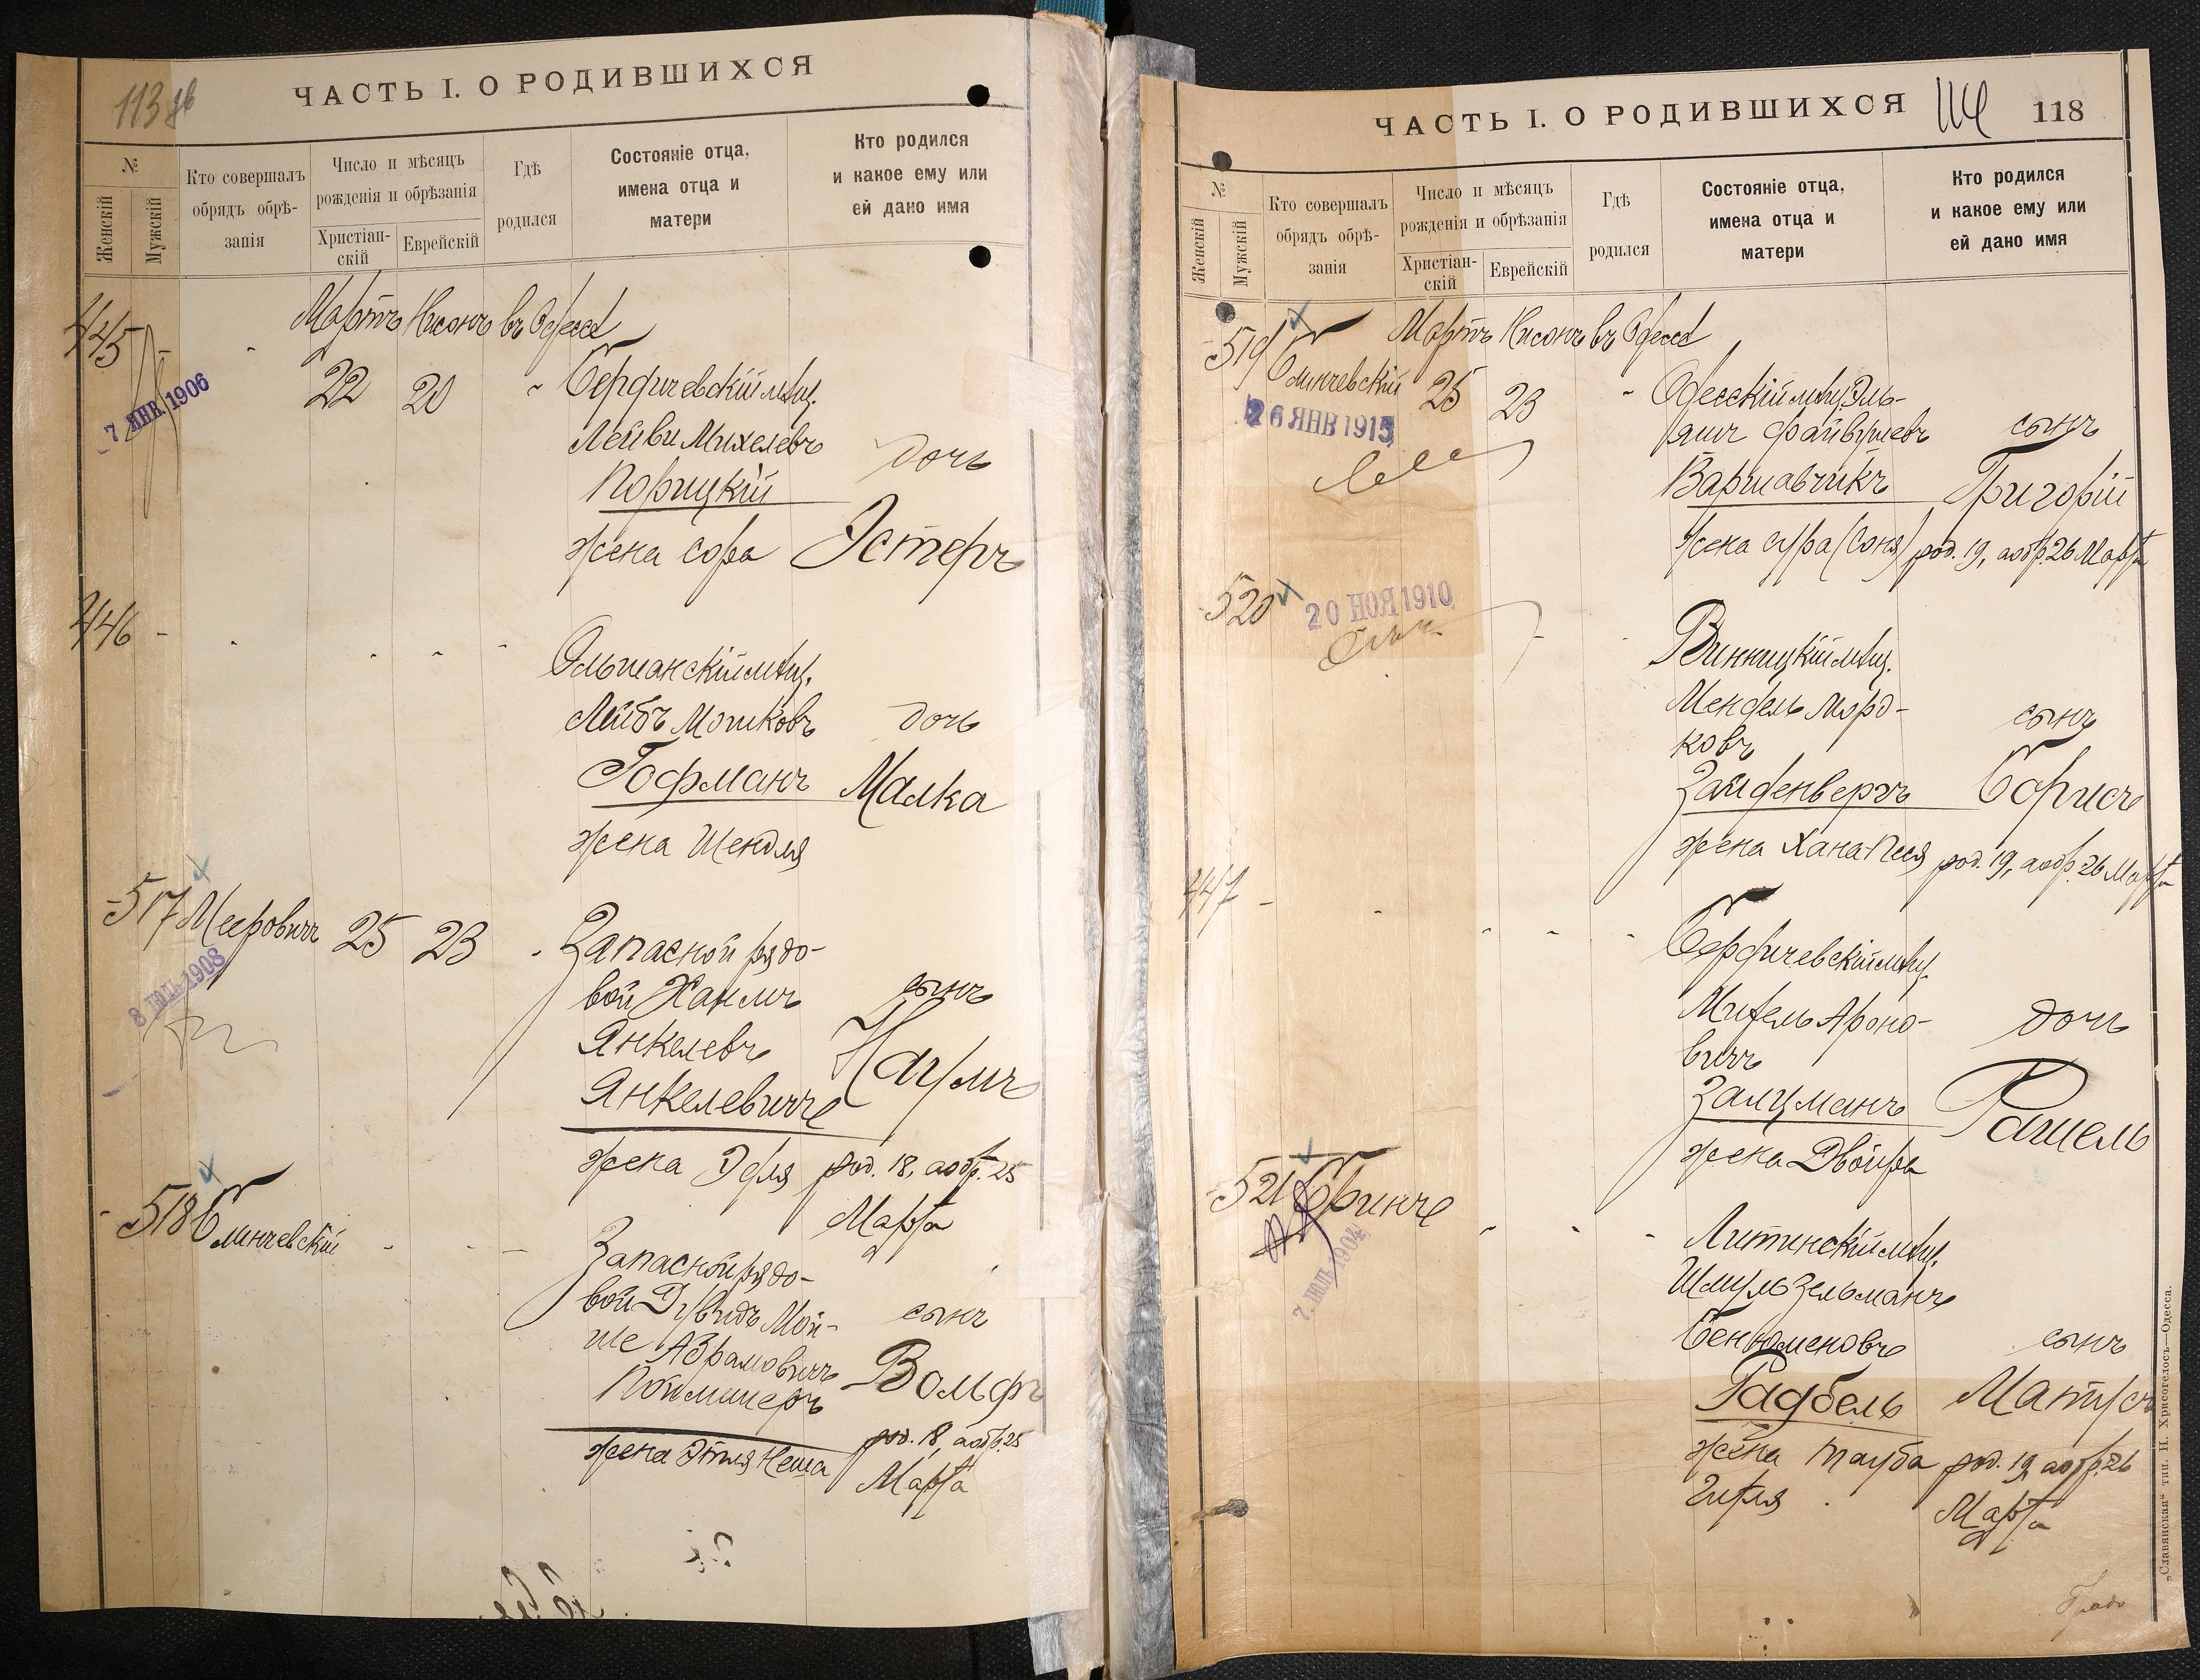 113 об
ЧАСТЬ I. О РОДИВШИХСЯ
№
Женскій
Мужскій
Кто совершалъ
обрядъ обрѣ-
занія
Число и мѣсяцъ
рожденія и обрѣзанія
Христіан-
скій
Еврейскій
Гдѣ
родился
Состояніе отца,
имена отца и
матери
Кто родился
и какое ему или
ей дано имя
Мартъ Нисонъ въ Одессѣ
445
7 ЯНВ 1906
22 20
Бердичевскій мѣщ.
Лейви Михелевъ
Порицкій
жена Сора
дочь
Эстеръ
446
Ольшанскій мѣщ.
Лейбъ Мошковъ
Гофманъ
жена Шендля
дочь
Малка
517 Мееровичъ 25 23
8 ІЮЛ 1908
Запасной рядо-
вой Хаимъ
Янкелевъ
Янкелевичъ
жена Эдля
сынъ
Наумъ
род. 18, а обр. 25
Марта
518 Блинчевскій
Запасной рядо-
вой Дувидъ Мой-
ше Абрамовичъ
Пойминеръ
жена Этля Неша
сынъ
Вольфъ
род. 18, а обр. 25
Марта
ЧАСТЬ I. О РОДИВШИХСЯ
114
118
№
Женскій
Мужскій
Кто совершалъ
обрядъ обрѣ-
занія
Число и мѣсяцъ
рожденія и обрѣзанія
Христіан-
скій
Еврейскій
Гдѣ
родился
Состояніе отца,
имена отца и
матери
Кто родился
и какое ему или
ей дано имя
Мартъ Нисонъ въ Одессѣ
519 Блинчевскій 25 23
26 ЯНВ 1915
Одесскій мѣщ. Эль-
яшъ Файвушевъ
Варшавчикъ
жена Сура (Соня)
сынъ
Григорій
род. 19, а обр. 26 Марта
520
20 НОЯ 1910
Винницкій мѣщ.
Мендель Морд-
ковъ
Зайденвергъ
жена Хана Песя
сынъ
Борисъ
род. 19, а обр. 26 Марта
447
Бердичевскій мѣщ.
Митель Ароно-
вичъ
Залцманъ
жена Двойра
дочь
Рашель
521 Бринче
7 ІЮЛ 1904
Литинскій мѣщ.
Шмуль Зельманъ
Бенюменовъ
Гадбель
жена Тауба
Гитля
сынъ
Матусъ
род. 19, а обр. 26
Марта
„Славянская“ тип. Н. Хрисогелосъ—Одесса.